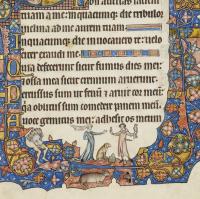 Non auertas faciem
tuam a me: inquacumque die tribulor
inclina ad me aurem tuam
Inquacumque die inuocauero te: uelo
citer exaudi me
Quia defecerunt sicut fumus dies mei: et
ossa mea sicut cremium aruerunt.
Percussus sum ut fenum et aruit cor meū:
qͣ oblitus sum comedere panem meū
A uoce gemitus mei: adhesit os meum